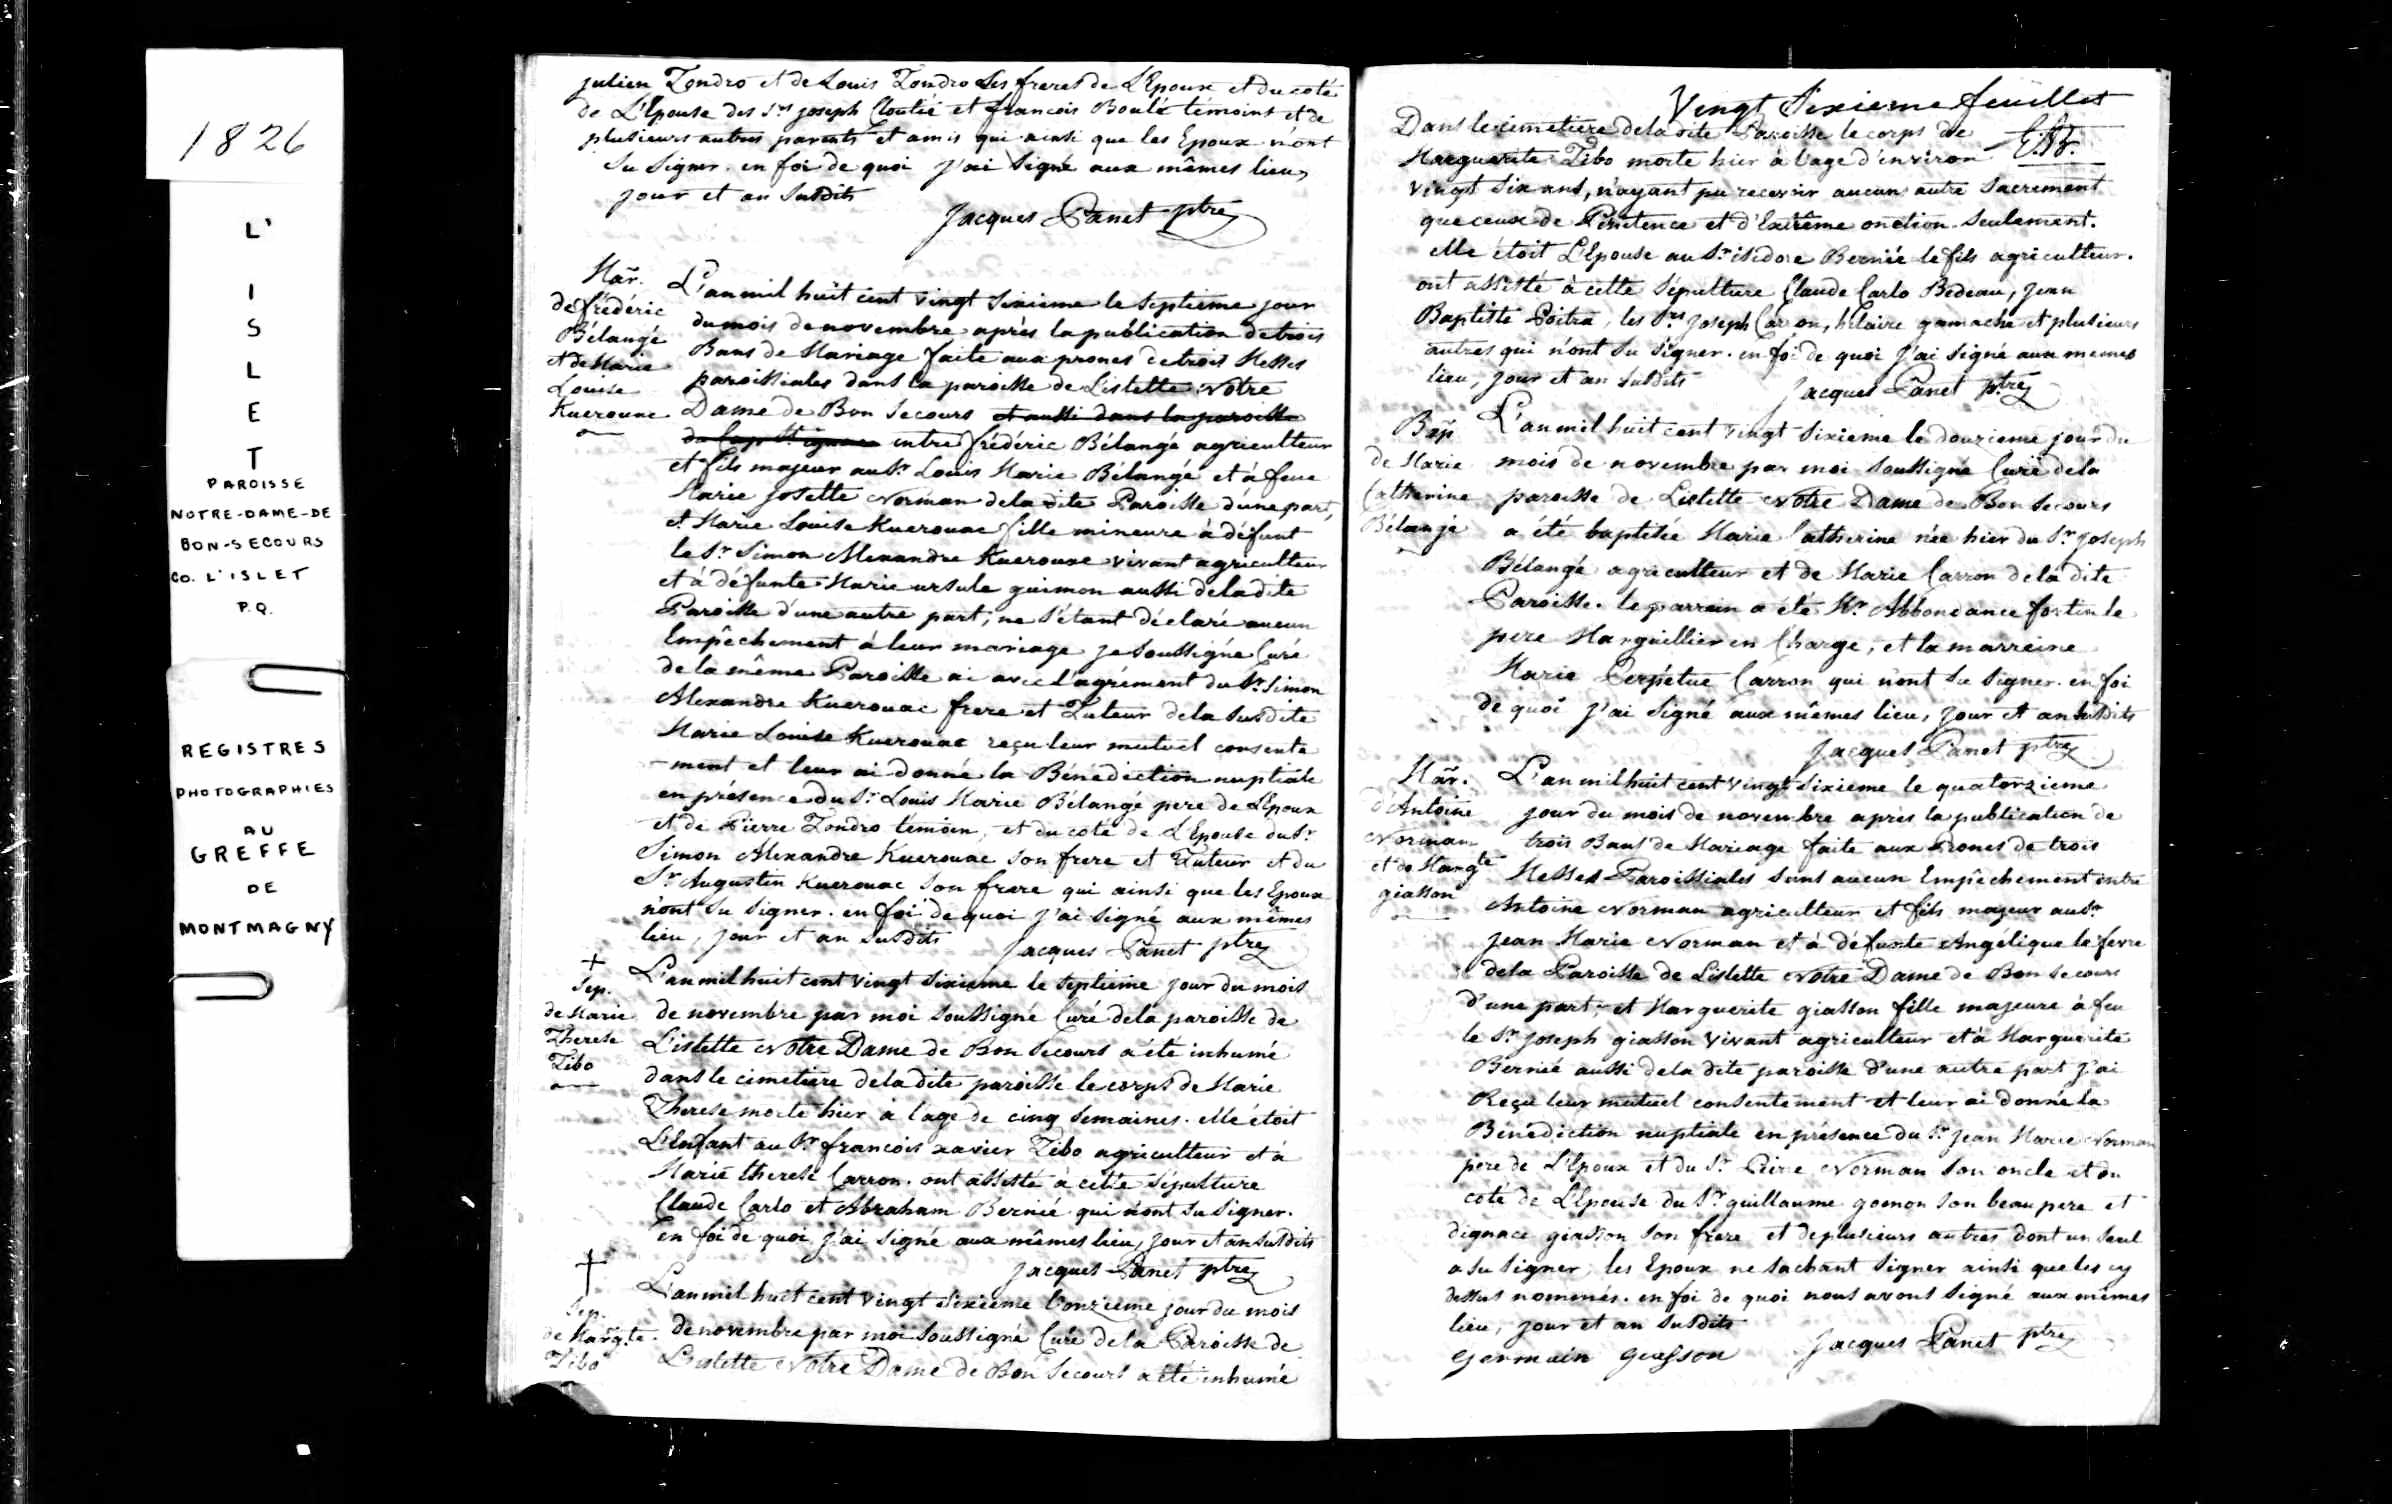 1826
L'
I
S
L
E
T
PAROISSE
NOTRE-DAME-DE
BON-SECOURS
CO. L'ISLET
P.Q.
REGISTRES
PHOTOGRAPHIES
AU
GREFFE
DE
MONTMAGNY
julien Zondro et de Louis Zondro Ses freres de L'Epoux et du coté
de L'Epouse des Srs joseph Cloutié et francois Boulé témoins et de
plusieurs autres parents et amis qui ainsi que les Epoux n'ont
Su Signer. en foi de quoi j'ai Signé aux mêmes lieu,
jour et an Susdits
Jacques Panet ptre
Mar.
de frédéric
Bélangé
et de Marie
Louise
Kuerouac
L'an mil huit cent vingt Sixieme le Septieme jour
du mois de novembre après la publication de trois
Bans de Mariage faite aux prones de trois Messes
paroissiales dans la paroisse de Lislette Notre
Dame de Bon Secours et aussi dans la paroisse
du Cap St ignace entre frédéric Bélangé agriculteur
et fils majeur au Sr Louis Marie Bélangé et à feue
Marie Josette Norman de la dite Paroisse d'une part,
et Marie Louise Kuerouac fille mineure à défunt
le Sr Simon Alexandre Kuerouac vivant agriculteur
et à défunte Marie ursule guimon aussi de la dite
Paroisse d'une autre part; ne s'étant déclaré aucun
Empêchement à leur mariage je Soussigné Curé
de la même Paroisse ai avec l'agrément du Sr Simon
Alexandre Kuerouac frere et Tuteur de la Susdite
Marie Louise Kuerouac reçu leur mutuel consente
-ment et leur ai donné la Bénédiction nuptiale
en présence du Sr Louis Marie Bélangé pere de L'Epoux
et de Pierre Zondro témoin, et du coté de L'Epouse du Sr
Simon Alexandre Kuerouac Son frere et Tuteur et du
Sr Augustin Kuerouac Son frere qui ainsi que les Epoux
n'ont Su Signer. en foi de quoi j'ai Signé aux mêmes
lieu, jour et an Susdits Jacques Panet ptre
+
Sep.
de Marie
Therese
Tibo
L'an mil huit cent vingt Sixieme le Septieme jour du mois
de novembre par moi Soussigné Curé de la paroisse de
L'islette Notre Dame de Bon Secours a été inhumé
dans le cimetiere de la dite paroisse le corps de Marie
Therese morte hier à l'age de cinq Semaines. elle étoit
L'Enfant au Sr francois xavier Tibo agriculteur et à
Marie therese Carron. ont assisté à cette Sépulture
Claude Carlo et Abraham Bernié qui n'ont Su Signer.
En foi de quoi j'ai Signé aux mêmes lieu, jour et an Susdits
Jacques Panet ptre
†
Sep.
de Margte.
Tibo
L'an mil huit cent vingt Sixieme l'onzieme jour du mois
de novembre par moi Soussigné Curé de la Paroisse de
L'islette Notre Dame de Bon Secours a été inhumé
Vingt Sixieme feuillet
Dans le cimetiere de la dite Paroisse le corps de
Marguerite Tibo morte hier à l'age d'environ
vingt Six ans, n'ayant pu recevoir aucun autre Sacrement
que ceux de Pénitence et d'Extrême onction Seulement.
elle étoit L'Epouse au Sr isidore Bernié le fils agriculteur.
ont assisté à cette Sépulture Claude Carlo Bedeau, Jean
Baptiste Poitra, les Srs Joseph Caron, hilaire gamache et plusieurs
autres qui n'ont Su Signer. en foi de quoi j'ai Signé aux memes
lieu, jour et an Susdits Jacques Panet ptre
Bap
de Marie
Catherine
Bélangé
L'an mil huit cent vingt Sixieme le douzieme jour du
mois de novembre par moi Soussigné Curé de la
paroisse de Lislette Notre Dame de Bon Secours
a été baptisée Marie Catherine née hier du Sr Joseph
Bélangé agriculteur et de Marie Carron de la dite
Paroisse. le parrain a été Mr Abbondance fortin le
pere Marguillier en Charge, et la marreine
Marie Perpétue Carron qui n'ont Su Signer. en foi
de quoi j'ai Signé aux mêmes lieu, jour et an Susdits
Jacques Panet ptre
Mar.
d'Antoine
Norman
et de Margte
giasson
L'an mil huit cent vingt Sixieme le quatorzieme
jour du mois de novembre après la publication de
trois Bans de Mariage faite aux Prones de trois
Messes Paroissiales Sans aucun Empêchement entre
Antoine Norman agriculteur et fils majeur au Sr
Jean Marie Norman et à défunte Angélique le fevre
de la Paroisse de Lislette Notre Dame de Bon Secours
d'une part; et Marguerite giasson fille majeure à feu
le Sr Joseph giasson vivant agriculteur et à Marguerite
Bernié aussi de la dite paroisse d'une autre part j'ai
Reçu leur mutuel consentement et leur ai donné la
Bénédiction nuptiale en présence du Sr Jean Marie Norman
pere de L'Epoux et du Sr Pierre Norman Son oncle et du
coté de L'Epouse du Sr guillaume gomon Son beau pere et
d'ignace giasson Son frere et de plusieurs autres dont un Seul
a Su Signer, les Epoux ne Sachant Signer ainsi que les cy
dessus nommés. en foi de quoi nous avons Signé aux mêmes
lieu, jour et an Susdits
Germain giasson Jacques Panet ptre